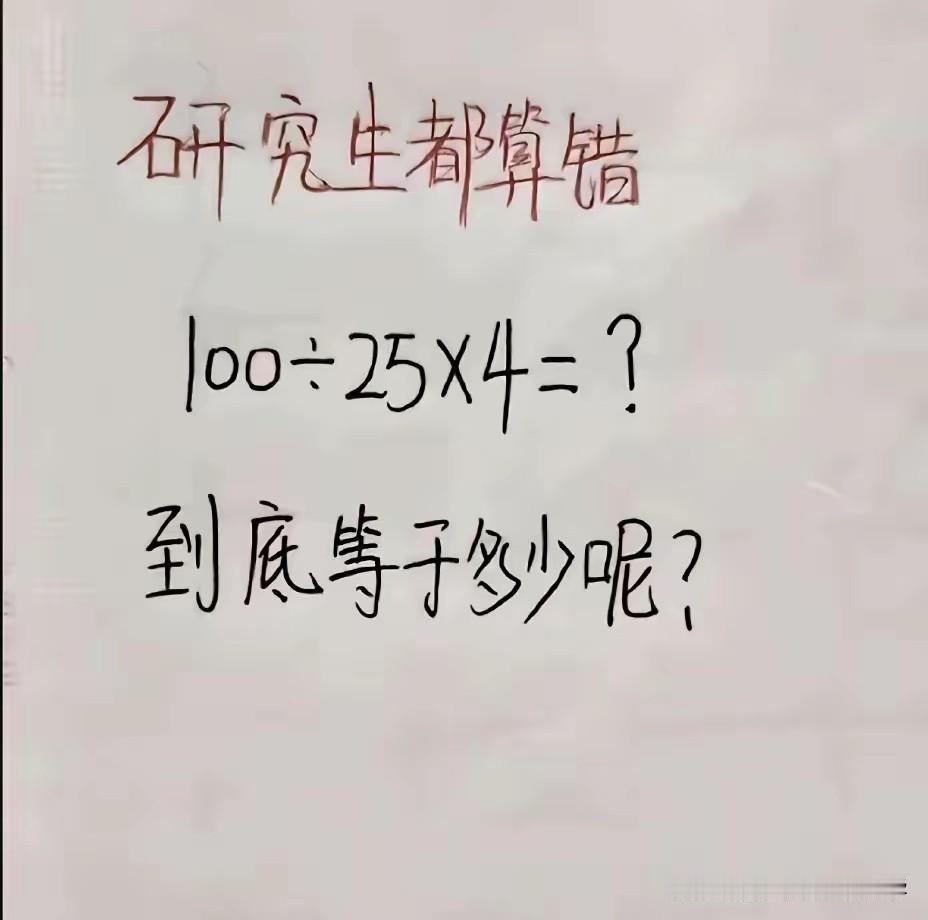 研究生都算错
100÷25×4=?
到底等于多少呢?